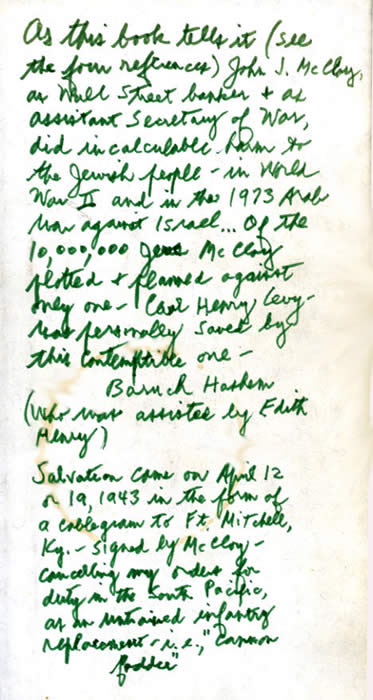 As this book tells it (see
the four references) John J. McCloy,
as Wall Street banker + as
assistant Secretary of War,
did incalculable harm to
the Jewish people - in World
War II and in the 1973 Arab
War against Israel... Of the
10,000,000 Jews McCloy
plotted & planned against
only one - Carl Henry Levy -
was personally saved by
this contemptible one -
Baruch Hashem
(who was assisted by Edith
Henry)
Salvation came on April 12
or 19, 1943 in the form of
a cablegram to Ft. Mitchell,
Ky. - signed by McCloy -
cancelling my orders for
duty in the South Pacific,
as an untrained infantry
replacement - i.e., "Cannon
fodder"